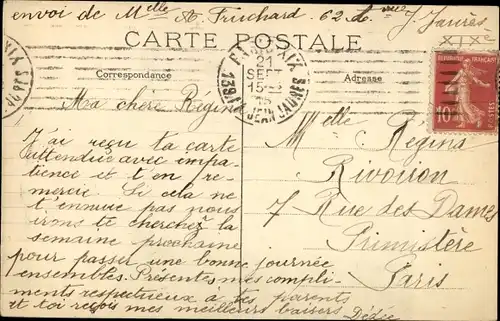 envoi de Mlle A. Fruchard. 62 rue J. Jaurès
XIXe
CARTE POSTALE
Correspondance
Adresse
21
SEPT
15
JEAN JAURÈS
10
Ma chère Régina
J'ai reçu ta carte
attendue avec impa-
tience et t'en re-
mercie. Si cela ne
t'ennuie pas nous
irons te cherchez la
semaine prochaine
pour passer une bonne journée
ensembles. Présentes mes compli-
ments respectueux a tes parents
et toi reçois mes meilleurs baisers Dédée
Melle Régina
Rivoiron
7 Rue des Dames
Paris